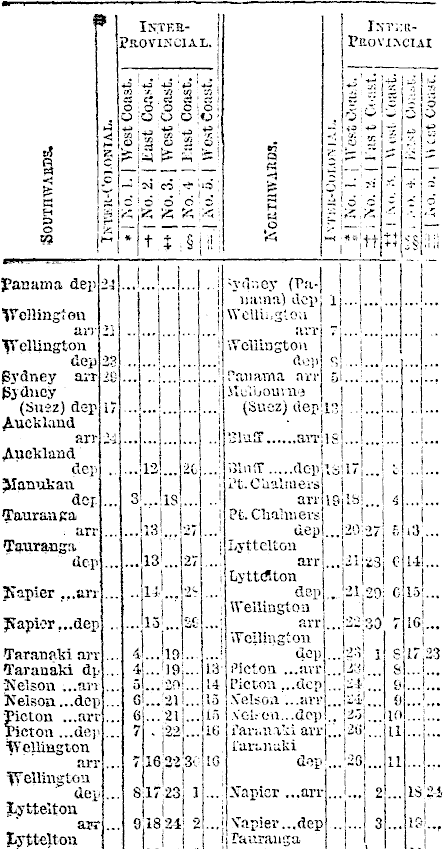 INTER-
PROVINCIAL.
INTER-
PROVINCIAL
SOUTHWARDS.
INTER-COLONIAL.
No. 1. West Coast.
No. 2. East Coast.
No. 3. West Coast.
No. 4 East Coast.
No. 5. West Coast.
NORTHWARDS.
INTER-COLONIAL.
No. 1. West Coast.
No. 2. East Coast.
No. 3. West Coast.
No. 4. East Coast.
No. 5. West Coast.
* † ‡ § ‖ ** †† ‡‡ §§ ‖‖
Panama dep 24 ... ... ... ... ... Sydney (Pa-
nama) dep 1 ... ... ... ... ...
Wellington Wellington
arr 21 ... ... ... ... ... arr 7 ... ... ... ... ...
Wellington Wellington
dep 23 ... ... ... ... ... dep 8 ... ... ... ... ...
Sydney arr 29 ... ... ... ... ... Panama arr 5 ... ... ... ... ...
Sydney Melbourne
(Suez) dep 17 ... ... ... ... ... (Suez) dep 13 ... ... ... ... ...
Auckland
arr 24 ... ... ... ... ... Bluff ......arr 18 ... ... ... ... ...
Auckland
dep ... ... 12 ... 26 ... Bluff .....dep 18 17 ... 3 ... ...
Manukau Pt. Chalmers
dep ... 3 ... 18 ... ... arr 19 18 ... 4 ... ...
Tauranga Pt. Chalmers
arr ... ... 13 ... 27 ... dep ... 20 27 5 13 ...
Tauranga Lyttelton
dep ... ... 13 ... 27 ... arr ... 21 28 6 14 ...
Lyttelton
Napier ...arr ... ... 14 ... 28 ... dep ... 21 29 6 15 ...
Wellington
Napier...dep ... ... 15 ... 29 ... arr ... 22 30 7 16 ...
Wellington
Taranaki arr ... 4 ... 19 ... ... dep ... 23 1 8 17 23
Taranaki dp ... 4 ... 19 ... 13 Picton ...arr ... 23 ... 8 ... ...
Nelson ...arr ... 5 ... 20 ... 14 Picton ...dep ... 24 ... 9 ... ...
Nelson ...dep ... 6 ... 21 ... 15 Nelson ...arr ... 24 ... 9 ... ...
Picton ...arr ... 6 ... 21 ... 15 Nelson...dep ... 25 ... 10 ... ...
Picton ...dep ... 7 ... 22 ... 16 Taranaki arr ... 26 ... 11 ... ...
Wellington Taranaki
arr ... 7 16 22 30 16 dep ... 26 ... 11 ... ...
Wellington
dep ... 8 17 23 1 ... Napier ...arr ... ... 2 ... 18 24
Lyttelton
arr ... 9 18 24 2 ... Napier...dep ... ... 3 ... 19 ...
Lyttelton Tauranga